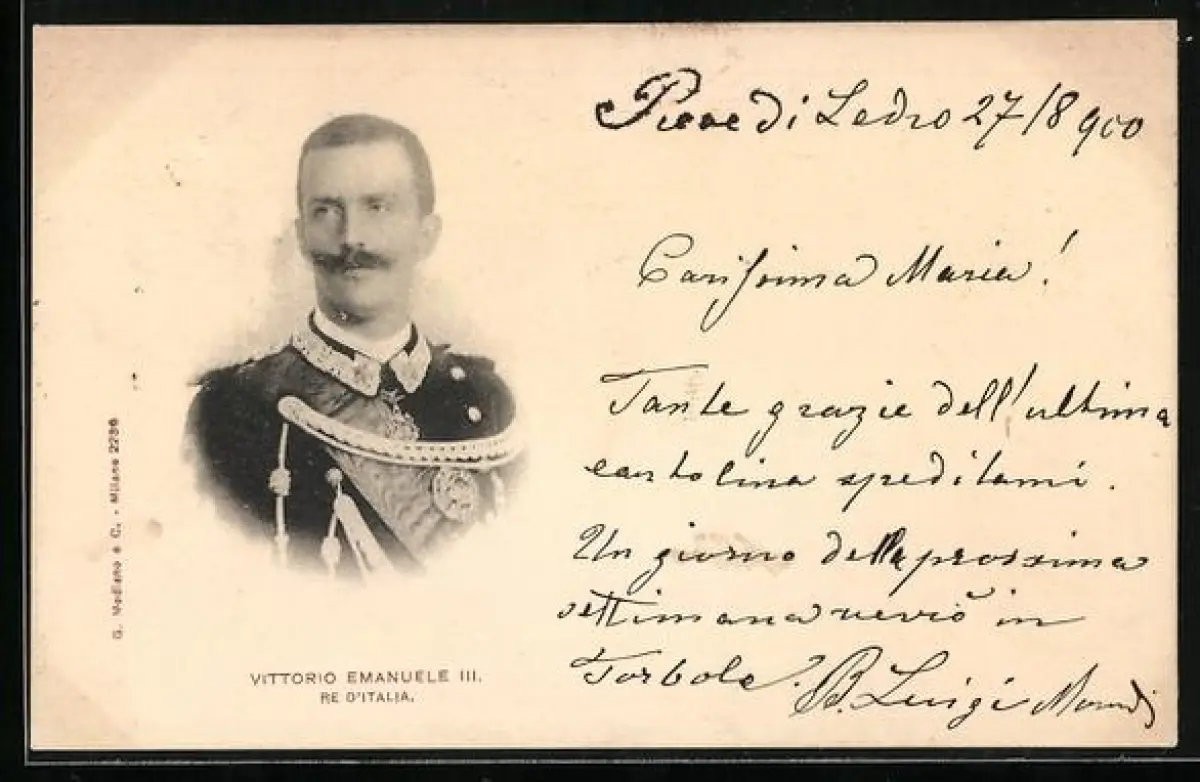 Pieve di Ledro 27/8 900
Carissima Maria!
Tante grazie dell'ultima
cartolina speditami.
Un giorno della prossima
settimana verrò in
Torbole. B. Luigi
VITTORIO EMANUELE III.
RE D'ITALIA.
G. Modiano e C. - Milano 2286